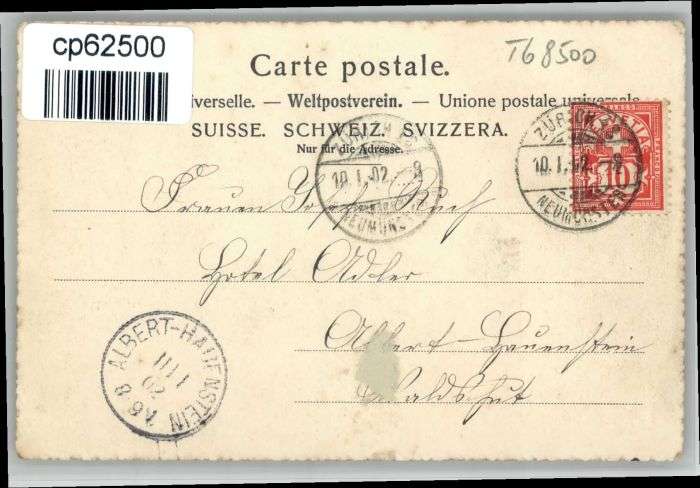 cp62500
T68500
Carte postale.
iverselle. — Weltpostverein. — Unione postale universale
SUISSE. SCHWEIZ. SVIZZERA.
Nur für die Adresse.
ZÜRICH
10.I.02.-9
NEUMÜNSTER
HELVETIA
10
ZÜRICH
10.I.02.-9
NEUMÜNS
Frauen Josef Ruch
Hotel Adler
Albert-Hauenstein
Waldshut
ALBERT-HAUENSTEIN
11 I
02